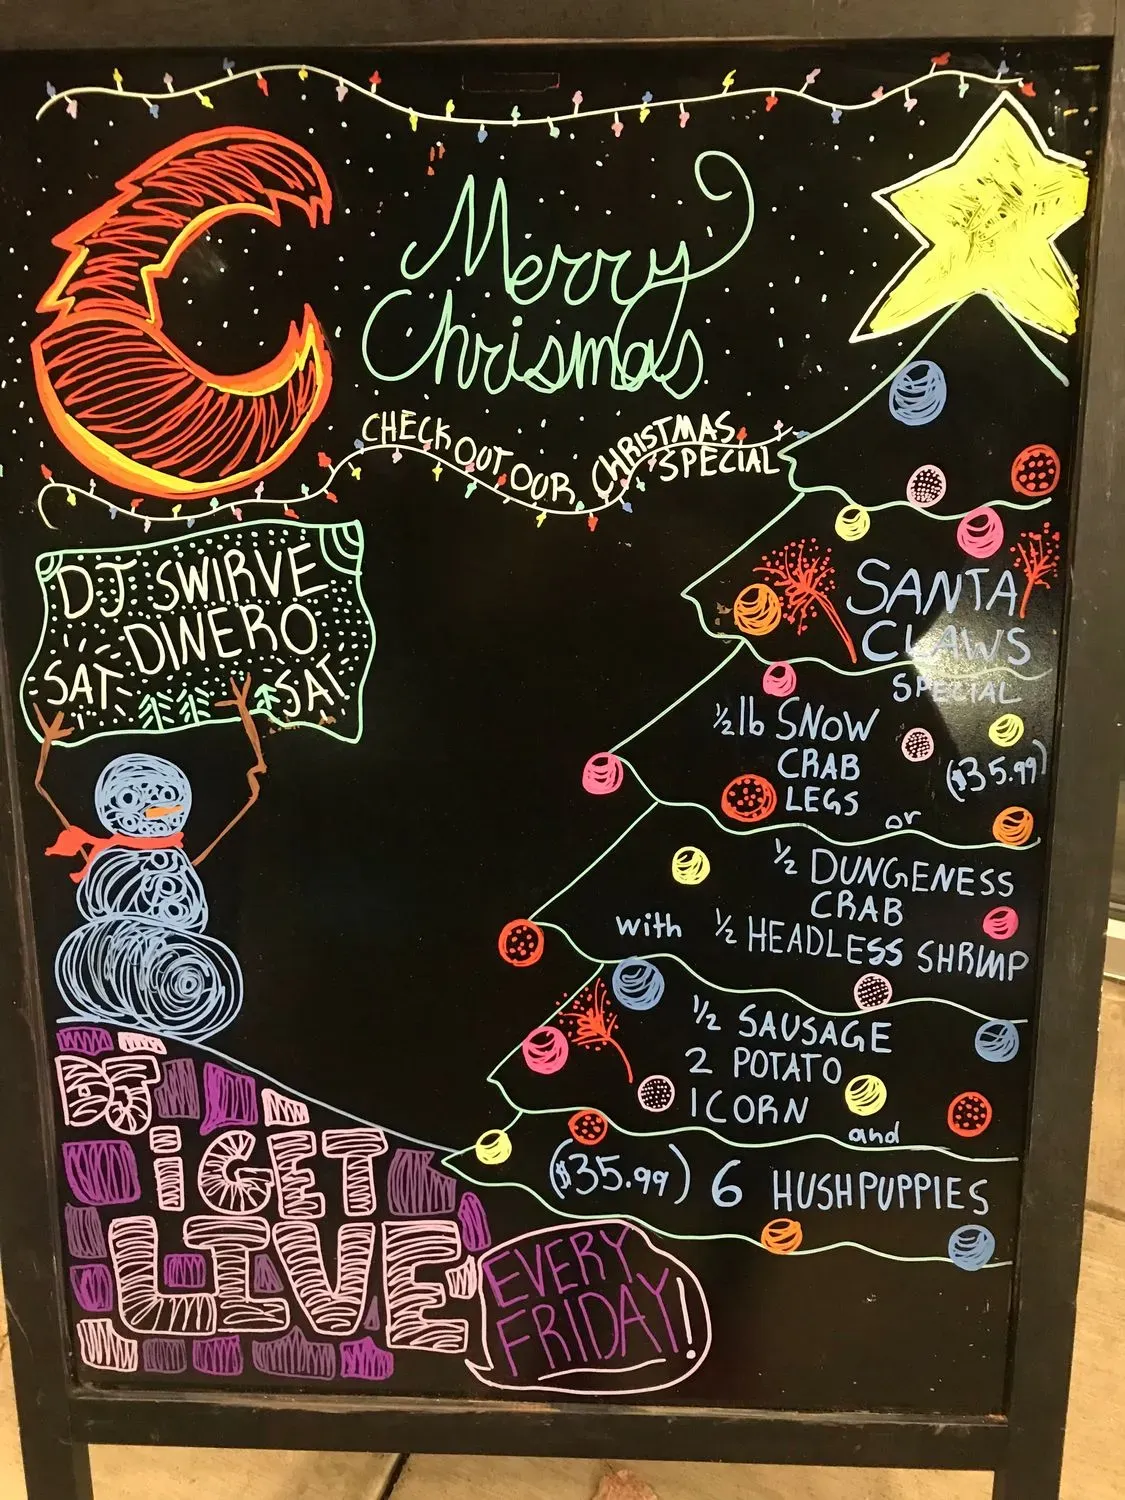 Merry
Chrismas
CHECK OUT OUR CHRISTMAS SPECIAL
DJ SWIRVE
DINERO
SAT SAT
SANTA
CLAWS
SPECIAL
($35.99)
½ lb SNOW
CRAB
LEGS
or
½ DUNGENESS
CRAB
with ½ HEADLESS SHRIMP
½ SAUSAGE
2 POTATO
1 CORN
and
($35.99) 6 HUSHPUPPIES
DJ
iGET
LIVE
EVERY
FRIDAY!